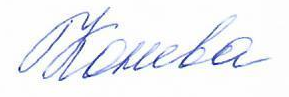 ГКонева